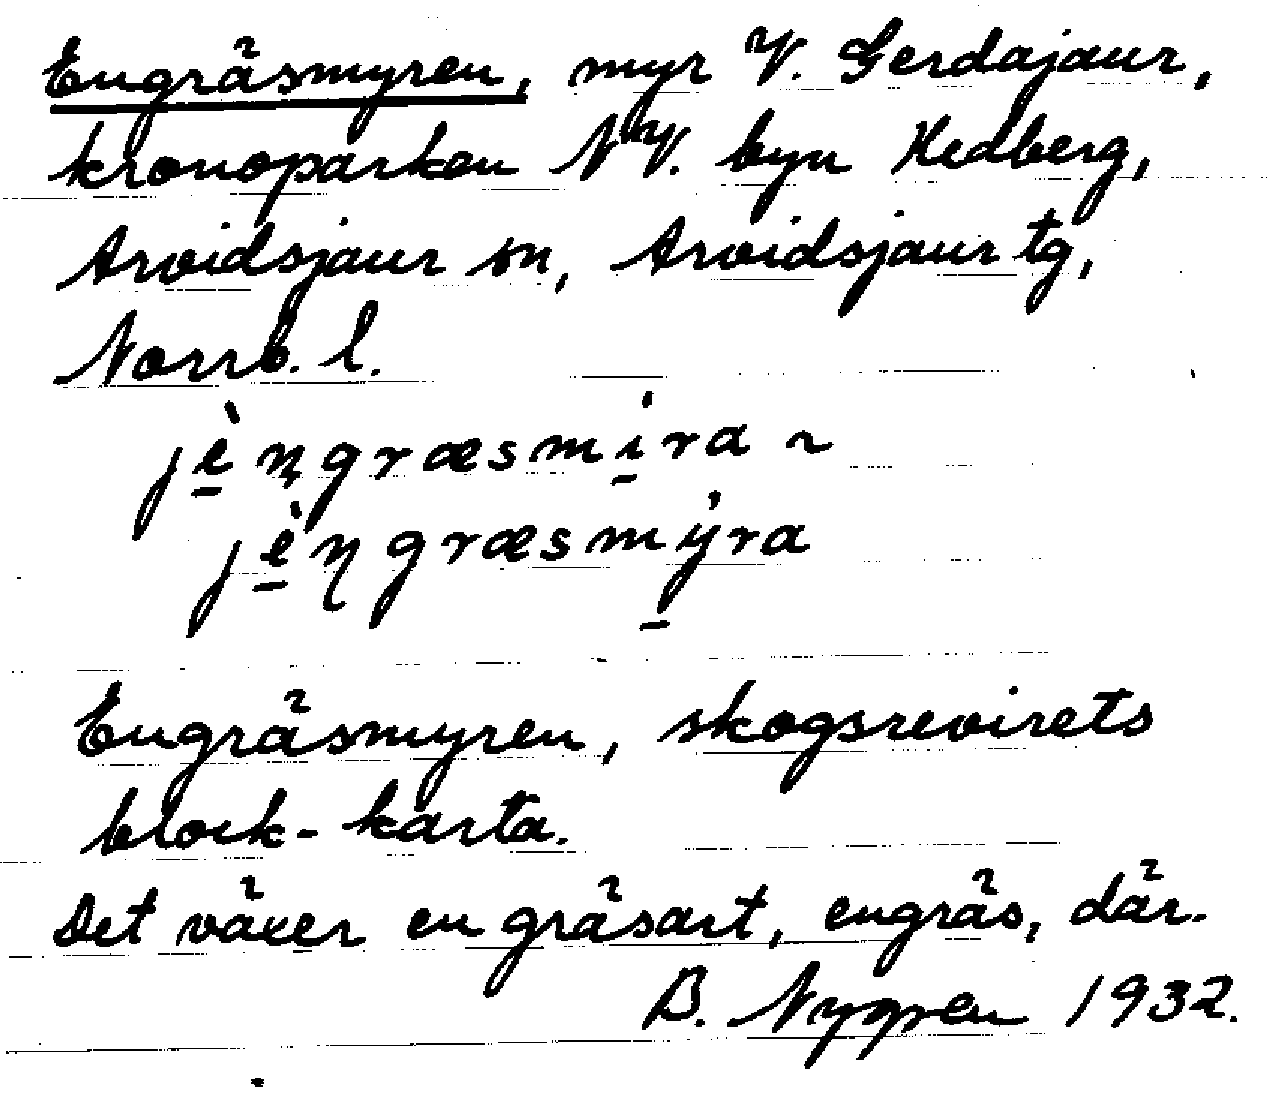 Engräsmyren, myr V. Gerdajaur,
kronoparken NV. byn Hedberg,
Arvidsjaur sn, Arvidsjaur tg,
Norrb. l.
jèngræsmira ~
jèŋgræsmýra
Engräsmyren, skogsrevirets
block-karta.
Det växer en gräsart, engräs, där.
B. Nygren 1932.